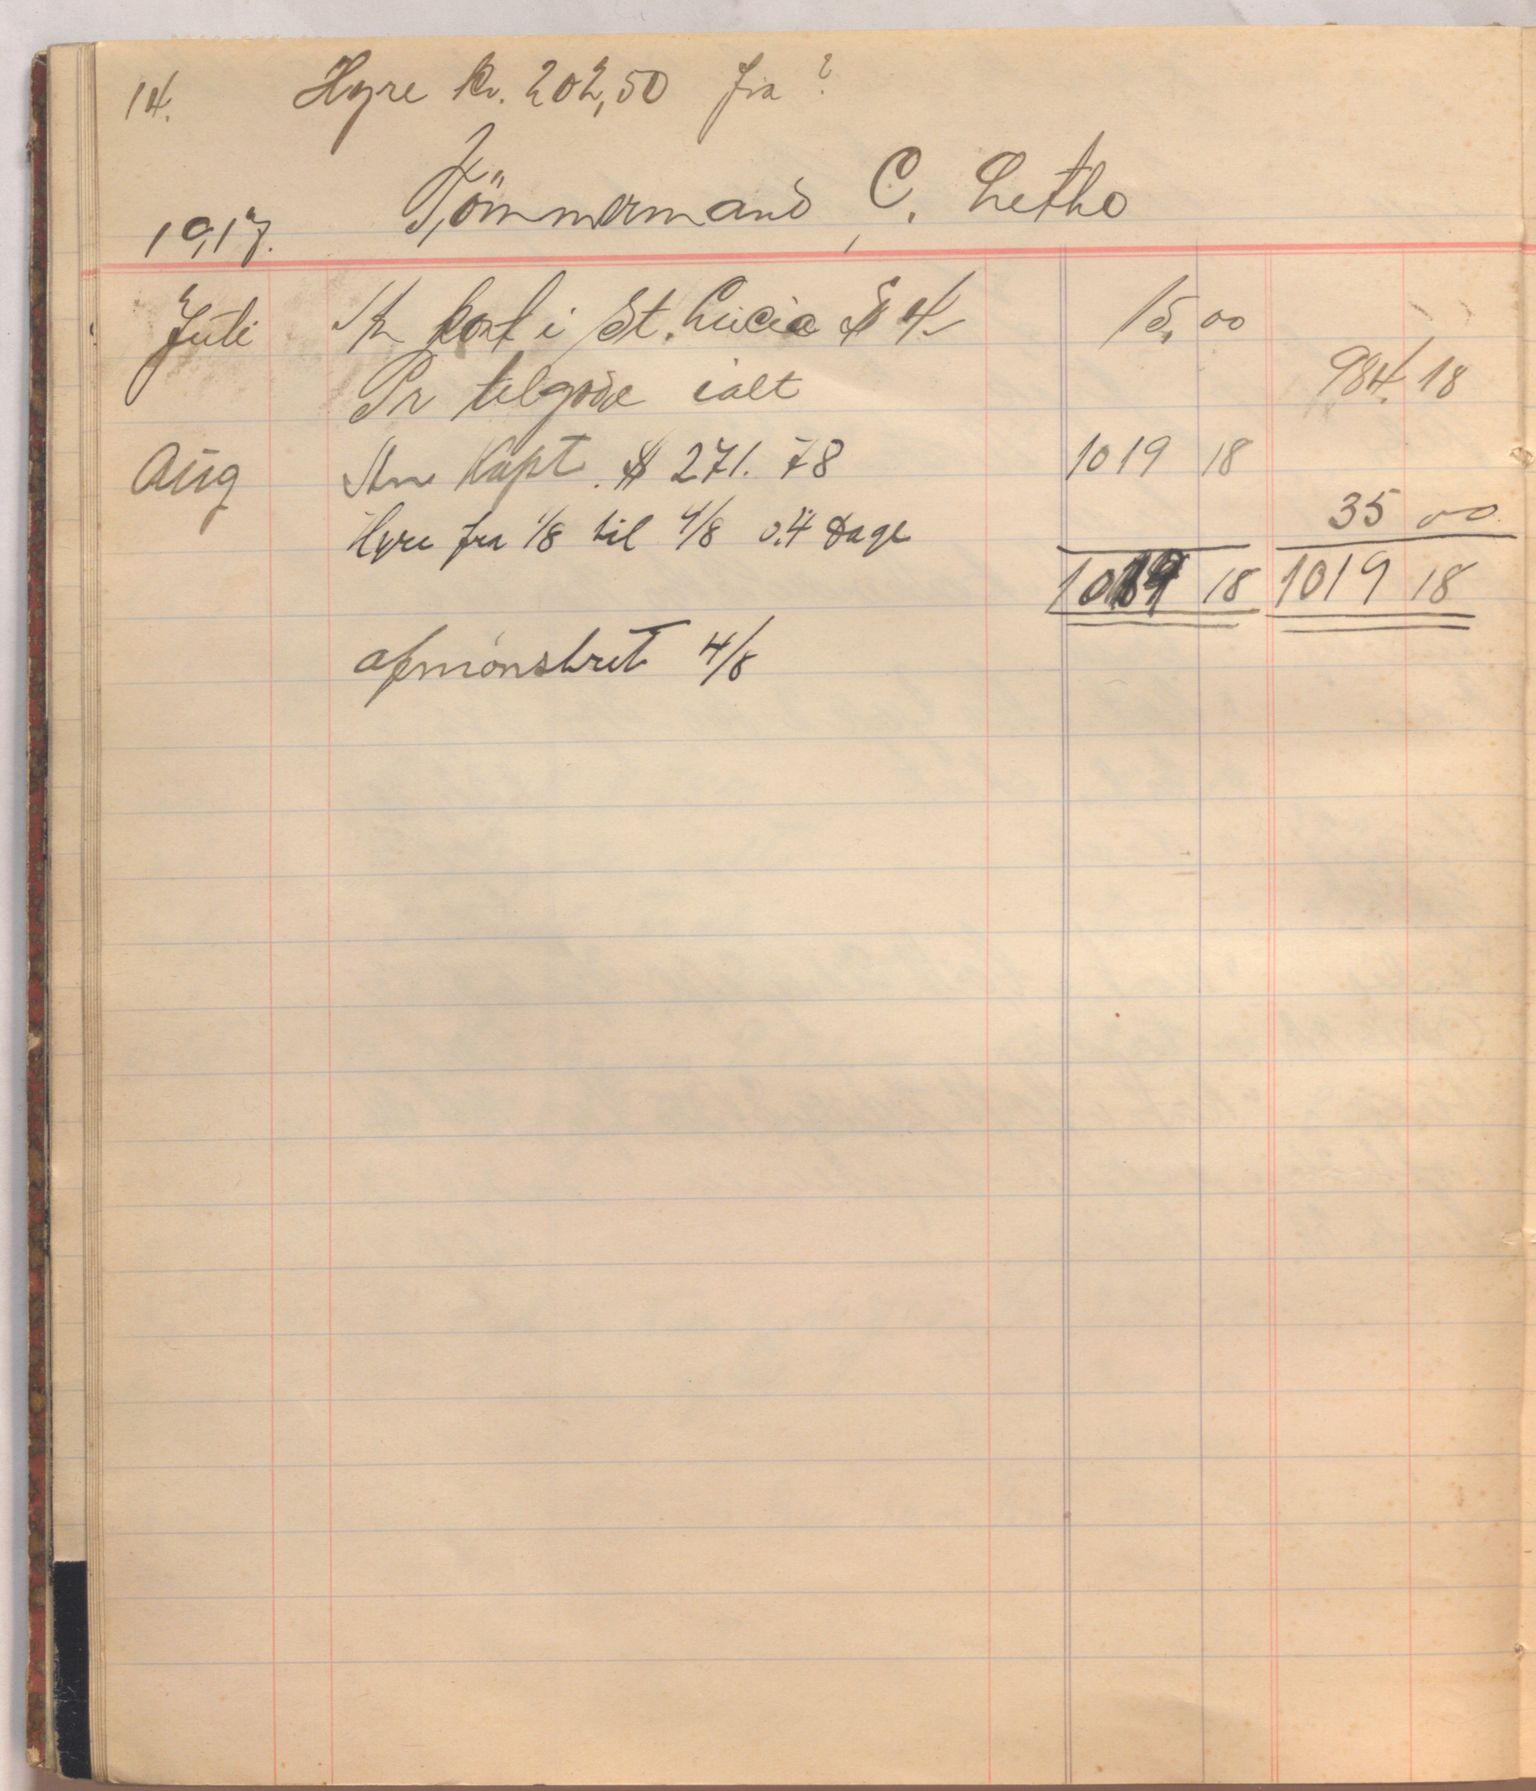 14. Hyre kr. 202,50 fra ?
Tömmermand C. Letho
1917.
Juli kort i St. Lucia $ 4 15,00
Pr tilgode ialt 984.18
Aug Kapt. $ 271.78 1019 18
Hyre fra 1/8 til 4/8 Dage 35 00
1019 18 1019 18
afmönstret 4/8